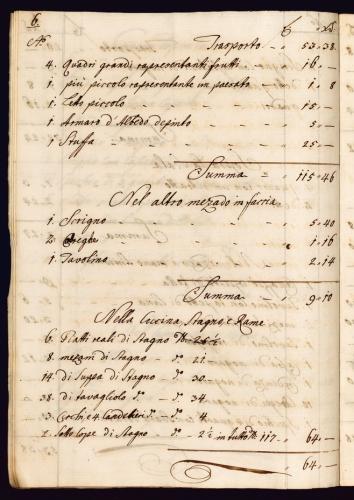 6.
N.° Trasporto - " 53 " 38
4. Quadri grandi rapresentanti frutti - " 16 " -
1. più piccolo rapresentante un paesato - " 1 " 8
1. Leto piccolo - - - - " 15 " -
1. Armaro d'Albedo depinto - - - " 5 " -
1. Stuffa - - - - " 25 " -
Summa - " 115 " 46
Nel altro mezado in faccia
1. Scrigno - - - - " 5 " 40
2. Careghe - - - - " 1 " 16
1. Tavolino - - - - " 2 " 14
Summa - " 9 " 10
Nella Cucina, Stagno, e Rame
6. Piatti reali di Stagno ℔ 25 ½
8. mezani di Stagno - d.° 21
14. di Suppa di Stagno - d.° 30
38. di tavagliolo d.° - d.° 34
d.° - d.° 4
2. Sotto Cope di Stagno - d.° 2 ½ in tutto ℔ 117 " 64 " -
" 64 " -